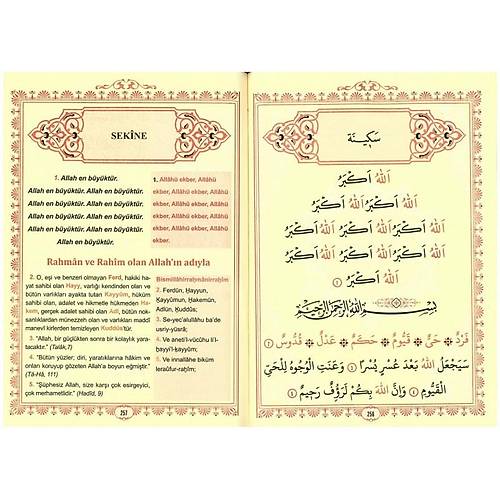 SEKİNE
1. Allah en büyüktür.
Allah en büyüktür. Allah en büyüktür.
Allah en büyüktür. Allah en büyüktür.
Allah en büyüktür. Allah en büyüktür.
Allah en büyüktür. Allah en büyüktür.
Allah en büyüktür.
1. Allâhü ekber, Allâhü
ekber, Allâhü ekber, Allâhü
ekber, Allâhü ekber, Allâhü
ekber, Allâhü ekber, Allâhü
ekber, Allâhü ekber, Allâhü
ekber.
Rahmân ve Rahîm olan Allah'ın adıyla
2. O, eşi ve benzeri olmayan Ferd, hakiki ha-
yat sahibi olan Hayy, varlığı kendinden olan ve
bütün varlıkları ayakta tutan Kayyûm, hüküm
sahibi olan, adalet ve hikmetle hükmeden Ha-
kem, gerçek adalet sahibi olan Adl, bütün nok-
sanlıklardan münezzeh olan ve varlıkları maddî
manevî kirlerden temizleyen Kuddûs'tür.
3. "Allah, bir güçlükten sonra bir kolaylık yara-
tacaktır." (Talâk, 7)
4. "Bütün yüzler; diri, yaratıklarına hâkim ve
onları koruyup gözeten Allah'a boyun eğmiştir."
(Tâ-Hâ, 111)
5. "Şüphesiz Allah, size karşı çok esirgeyici,
çok merhametlidir." (Hadîd, 9)
Bismillâhirraḥmânirraḥîm
2. Ferdün, Ḥayyun,
Ḳayyûmun, Ḥakemün,
Adlün, Ḳuddûs!
3. Se-yec'alullâhu ba'de
usriy-yüsrâ;
4. Ve aneti'l-vücûhu li'l-
ḥayyi'l-ḳayyûm;
5. Ve innallâhe biküm
leraûfur-raḥîm;
257
سَكِينَة
اَللّٰهُ اَكْبَرُ
اَللّٰهُ اَكْبَرُ اَللّٰهُ اَكْبَرُ اَللّٰهُ اَكْبَرُ
اَللّٰهُ اَكْبَرُ اَللّٰهُ اَكْبَرُ اَللّٰهُ اَكْبَرُ
اَللّٰهُ اَكْبَرُ اَللّٰهُ اَكْبَرُ اَللّٰهُ اَكْبَرُ
اَللّٰهُ اَكْبَرُ ١
بِسْمِ اللّٰهِ الرَّحْمٰنِ الرَّحِيمِ
فَرْدٌ حَيٌّ قَيُّومٌ حَكَمٌ عَدْلٌ قُدُّوسٌ ٢
سَيَجْعَلُ اللّٰهُ بَعْدَ عُسْرٍ يُسْرًا ٣ وَعَنَتِ الْوُجُوهُ لِلْحَيِّ
الْقَيُّومِ ٤ وَاِنَّ اللّٰهَ بِكُمْ لَرَؤُفٌ رَحِيمٌ ٥
258